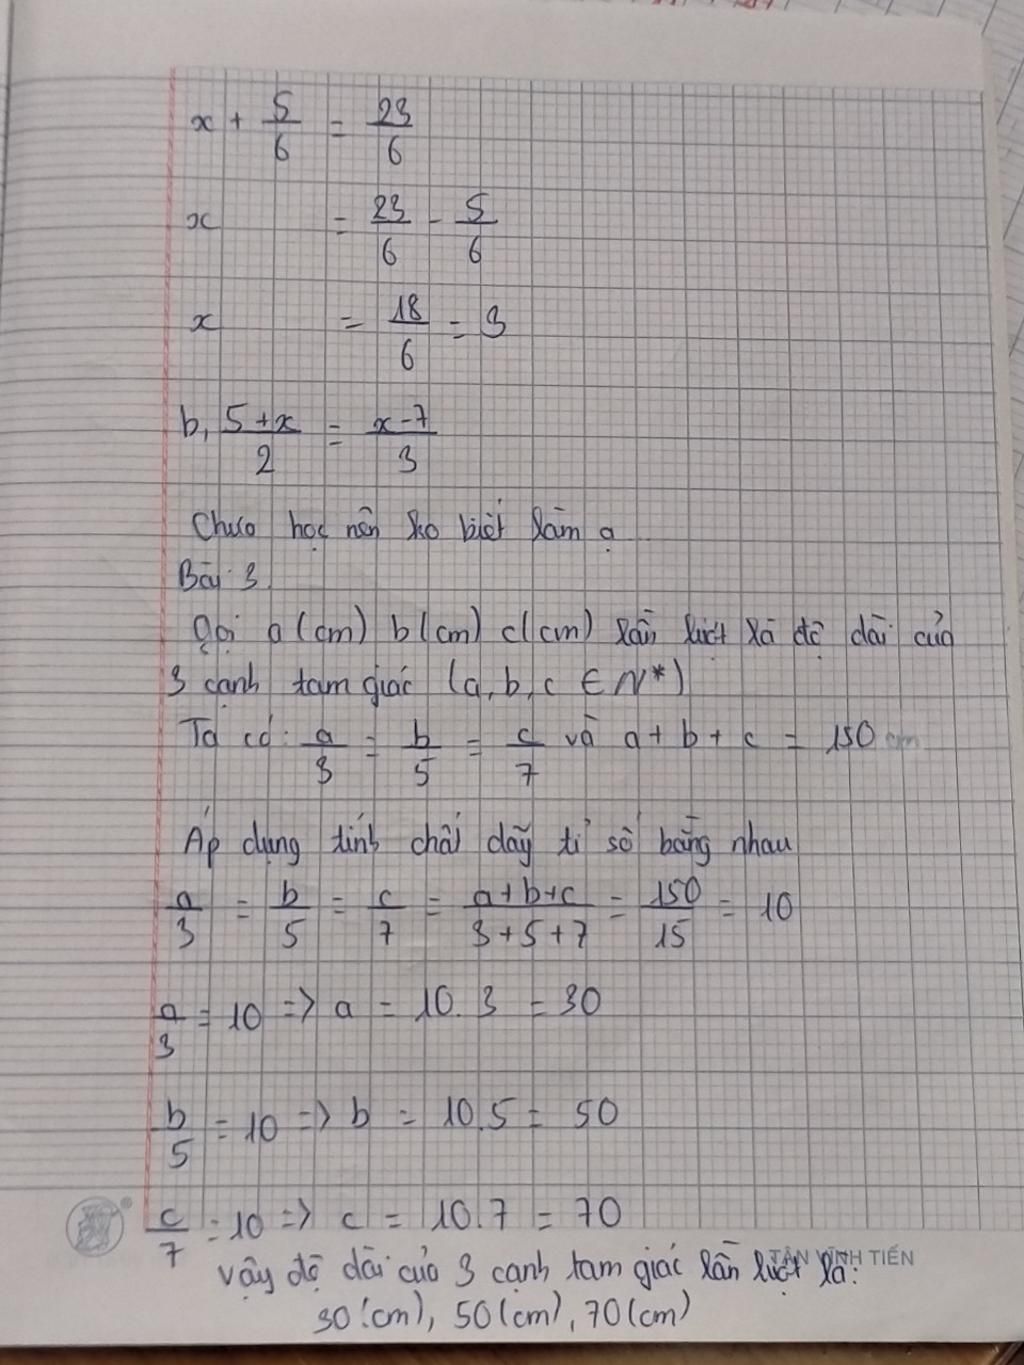 x + 5/6 = 23/6
x = 23/6 - 5/6
x = 18/6 = 3
b, 5+x/2 = x-7/3
Chưa học nên ko biết làm ạ
Bài 3
Gọi a(cm) b(cm) c(cm) lần lượt là độ dài của
3 cạnh tam giác (a, b, c ∈ N*)
Ta có: a/3 = b/5 = c/7 và a + b + c = 150 cm
Áp dụng tính chất dãy tỉ số bằng nhau
a/3 = b/5 = c/7 = a+b+c/3+5+7 = 150/15 = 10
a/3 = 10 => a = 10.3 = 30
b/5 = 10 => b = 10.5 = 50
c/7 = 10 => c = 10.7 = 70
TÂN VĨNH TIẾN
Vậy độ dài của 3 cạnh tam giác lần lượt là:
30(cm), 50(cm), 70(cm)